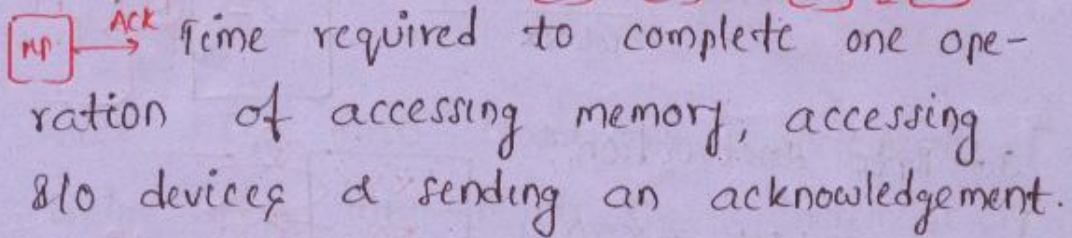 MP ACK Time required to complete one ope-
ration of accessing memory, accessing
I/O devices & sending an acknowledgement.